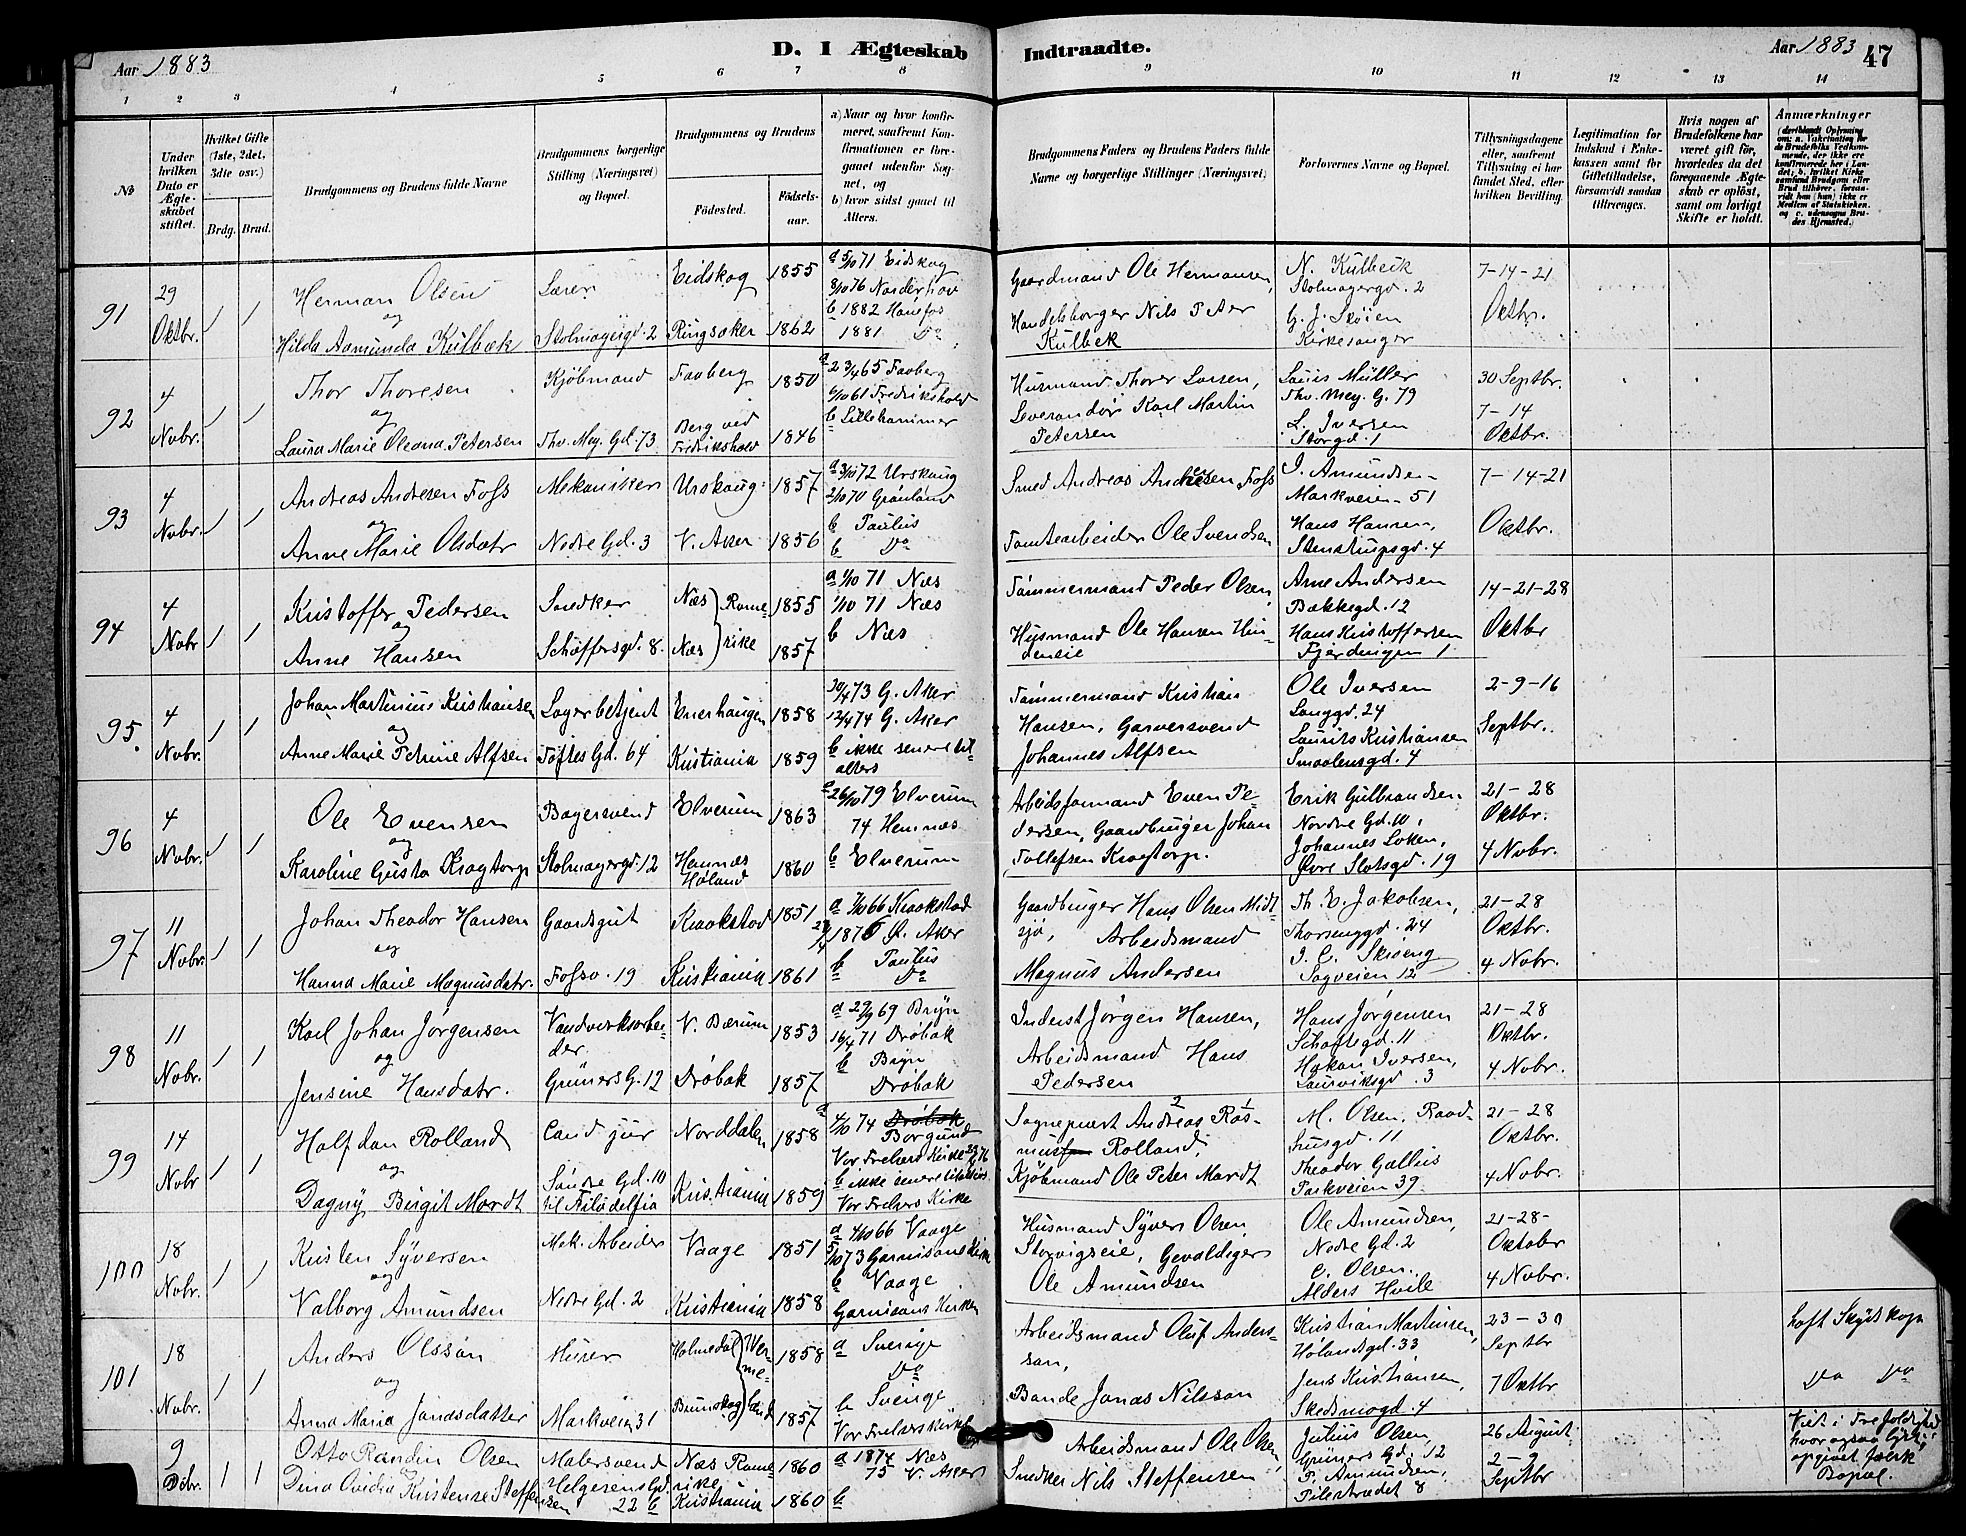 Aar 1883
D. I Ægteskab
Indtraadte.
Aar 1883
47
1 2 3 4 5 6 7 8
9 10 11 12 13 14
No
Under hvilken Dato er Ægteskabet stiftet.
Hvilket Gifte (1ste, 2det, 3dte osv.)
Brdg. Brud.
Brudgommens og Brudens fulde Navne
Brudgommens borgerlige Stilling (Næringsvei) og Bopæl.
Brudgommens og Brudens
Födested.
Födselsaar.
a) Naar og hvor konfirmeret, saafremt Konfirmationen er foregaaet udenfor Sognet, og
b) hvor sidst gaaet til Alters.
Brudgommens Faders og Brudens Faders fulde Navne og borgerlige Stillinger (Næringsvei)
Forlovernes Navne og Bopæl.
Tillysningsdagene eller, saafremt Tillysning ei har fundet Sted, efter hvilken Bevilling.
Legitimation for Indskud i Enkekassen samt for Giftetilladelse, forsaavidt saadan tiltrænges.
Hvis nogen af Brudefolkene har været gift för, hvorledes da det foregaaende Ægteskab er oplöst, samt om lovligt Skifte er holdt.
Anmærkninger
91
29 Oktbr.
1 1
Herman Olsen
og
Hilda Aamunda Kulbæk
Lærer
Stolmagergd. 2
Eidskog 1855
Ringsaker 1862
a 5/10 71 Eidskog
8/10 76 Norderhov
b 1882 Hønefos
1881 Do
Gaardmand Ole Hermansen,
Handelsborger Nils Peter
Kulbek
N. Kulbeck
Stolmagergd. 2
G. J. Skøien
Kirkesanger
7-14-21
Oktbr.
92
4 Nvbr.
1 1
Thor Thoresen
og
Laura Marie Oleana Petersen
Kjøbmand
Thv. Mey. Gd. 73
Faaberg 1850
Berg ved Fredrikshald 1846
a 23/4 65 Faaberg
6/10 61 Fredrikshald
b Lillehammer
Husmand Thorer Larsen,
Leverandør Karl Martin
Petersen
Lauis Müller
Thv. Mey. G. 79
L. Iversen
Storgd. 1
30 Septbr.
7-14
Oktbr.
93
4 Nvbr.
1 1
Andreas Andresen Foss
og
Anne Marie Olsdatr
Mekaniker
Nedre Gd. 3
Urskoug 1857
V. Aker 1856
a 3/10 72 Urskoug
2/10 70 Grønland
b Paulus
b Do
Smed Andreas Andresen Foss
Tomtearbeider Ole Svendsen
I. Amundsen
Markveien 51
Hans Hansen,
Stenstrupsgd. 4
7-14-21
Oktbr.
94
4 Nvbr
1 1
Kristoffer Pedersen
og
Anne Hansen
Snedker
Schøffersgd. 8.
Næs Romerike 1855
Næs 1857
a 1/10 71 Næs
1/10 71 Næs
b Næs
Tømmermand Peder Olsen,
Husmand Ole Hansen
Arne Andersen
Bakkegd. 12
Hans Kristoffersen
Fjerdingen 1
14-21-28
Oktbr
95.
4 Nvbr.
1 1
Johan Martinius Kristiansen
og
Anne Marie Petrine Alfsen
Lagerbetjent
Toftes Gd. 64
Enerhaugen 1858
Kristiania 1859
20/4 73 G. Aker
12/4 74 G. Aker
b ikke senere til
alters
Tømmermand Kristian
Hansen, Garversvend
Johannes Alfsen
Ole Iversen
Langgd. 24
Laurits Kristiansen
Smaalensgd. 4
2-9-16
Septbr.
96
4 Nvbr.
1 1
Ole Evensen
og
Karoline Gusta Kragtorp
Bagersvend
Stolmagergd. 12
Elverum 1863
Hemnæs Høland 1860
a 26/10 79 Elverum
74 Hemnæs
b Elverum
Arbeidsformand Even Pedersen,
Gaardbruger Johan
Tollefsen Kragtorp.
Erik Gulbrandsen
Nordre Gd. 10,
Johannes Loken,
Øvre Slotsgd. 19
21-28
Oktbr.
4 Nvbr.
97
11 Nvbr.
1 1
Johan Theodor Hansen
og
Hanna Marie Magnusdatr.
Gaardsgut
Fossv. 19
Kraakstad 1851
Kristiania 1861
a 7/10 66 Kraakstad
1876 Ø. Aker
b Paulus
b Do
Gaardbruger Hans Olsen Midtsjø,
Arbeidsmand
Magnus Andersen
Th. E. Jakobsen,
Thorsenggd. 24
Sagveien 12
21-28
Oktbr.
4 Nvbr.
98
11 Nvbr.
1 1
Karl Johan Jørgensen
og
Jensine Hansdatr.
Vandverksarbeider.
Grüners G. 12
V. Bærum 1853
Drøbak 1857
a 27/9 69 Bryn
16/4 71 Drøbak
b Bryn
Drøbak
Inderst Jørgen Hansen,
Arbeidsmand Hans
Pedersen
Hans Jørgensen
11
Hakan Iversen,
Laurviksgd. 3
21-28
Oktbr.
4 Nvbr.
99
14 Nvbr
1 1
Halfdan Rolland
og
Dagny Birgit Mardt
Cand jur
Søndre Gd. 10
til Filadelfia
Norddalen 1858
Kristiania 1859
a 4/10 74 Drøbak
Borgund
Vor Frelsers Kirke
b ikke senere til alters
Vor Frelsers Kirke
Sogneprest Andreas Rasmus Rolland,
Kjøbmand Ole Peter Mardt
M. Olsen, Raadhusgd. 11
Theodor Gallus
Parkveien 39.
21-28
Oktbr.
4 Nvbr.
100
18 Nvbr.
1 1
Kristen Syversen
og
Valborg Amundsen
Mek. Arbeider
Nedre Gd. 2
Vaage 1851
Kristiania 1858
a 4/10 66 Vaage
5/10 73 Garnisons Kirk
b Vaage
Garnisons Kirken
Husmand Syver Olsen,
Storvigseie, Gevaldiger
Ole Amundsen
Ole Amundsen,
Nedre Gd. 2
C. Olsen.
Alders Hvile
21-28-
Oktober
4 Nvbr.
101
18 Nvbr.
1 1
Anders Olsson
og
Anna Maria Jonasdatter
Murer
Markveien 31
Holmedal Vermeland 1858
Brunskog 1857
a Sverige
Do
b Sverige
Vor Frelsers Kirke
Arbeidsmand Oluf Andersson,
Bonde Jonas Nilsson
Kristian Martinsen,
Hølandsgd. 33
Jens Kristiansen,
Skedsmogd. 4
23-30
Septbr
7 Oktbr
haft Skydskop
Do Do
9
Dcbr.
1 1
Otto Randin Olsen
og
Dina Ovidia Kristense Steffensen
Malersvend
Helgesens Gd.
22 b
Næs Romerike 1860
Kristiania 1860
a 1874 Næs
75 V. Aker
b
Arbeidsmand Ole Olsen,
Snedker Nils Steffensen
Julius Olsen,
Grüners Gd. 12
P. Amundsen,
Pilestrædet 8
26 August
2-9
Septbr
Viet i Trefoldighed
hvor ogsaa
opgivet falsk
Bopæl.